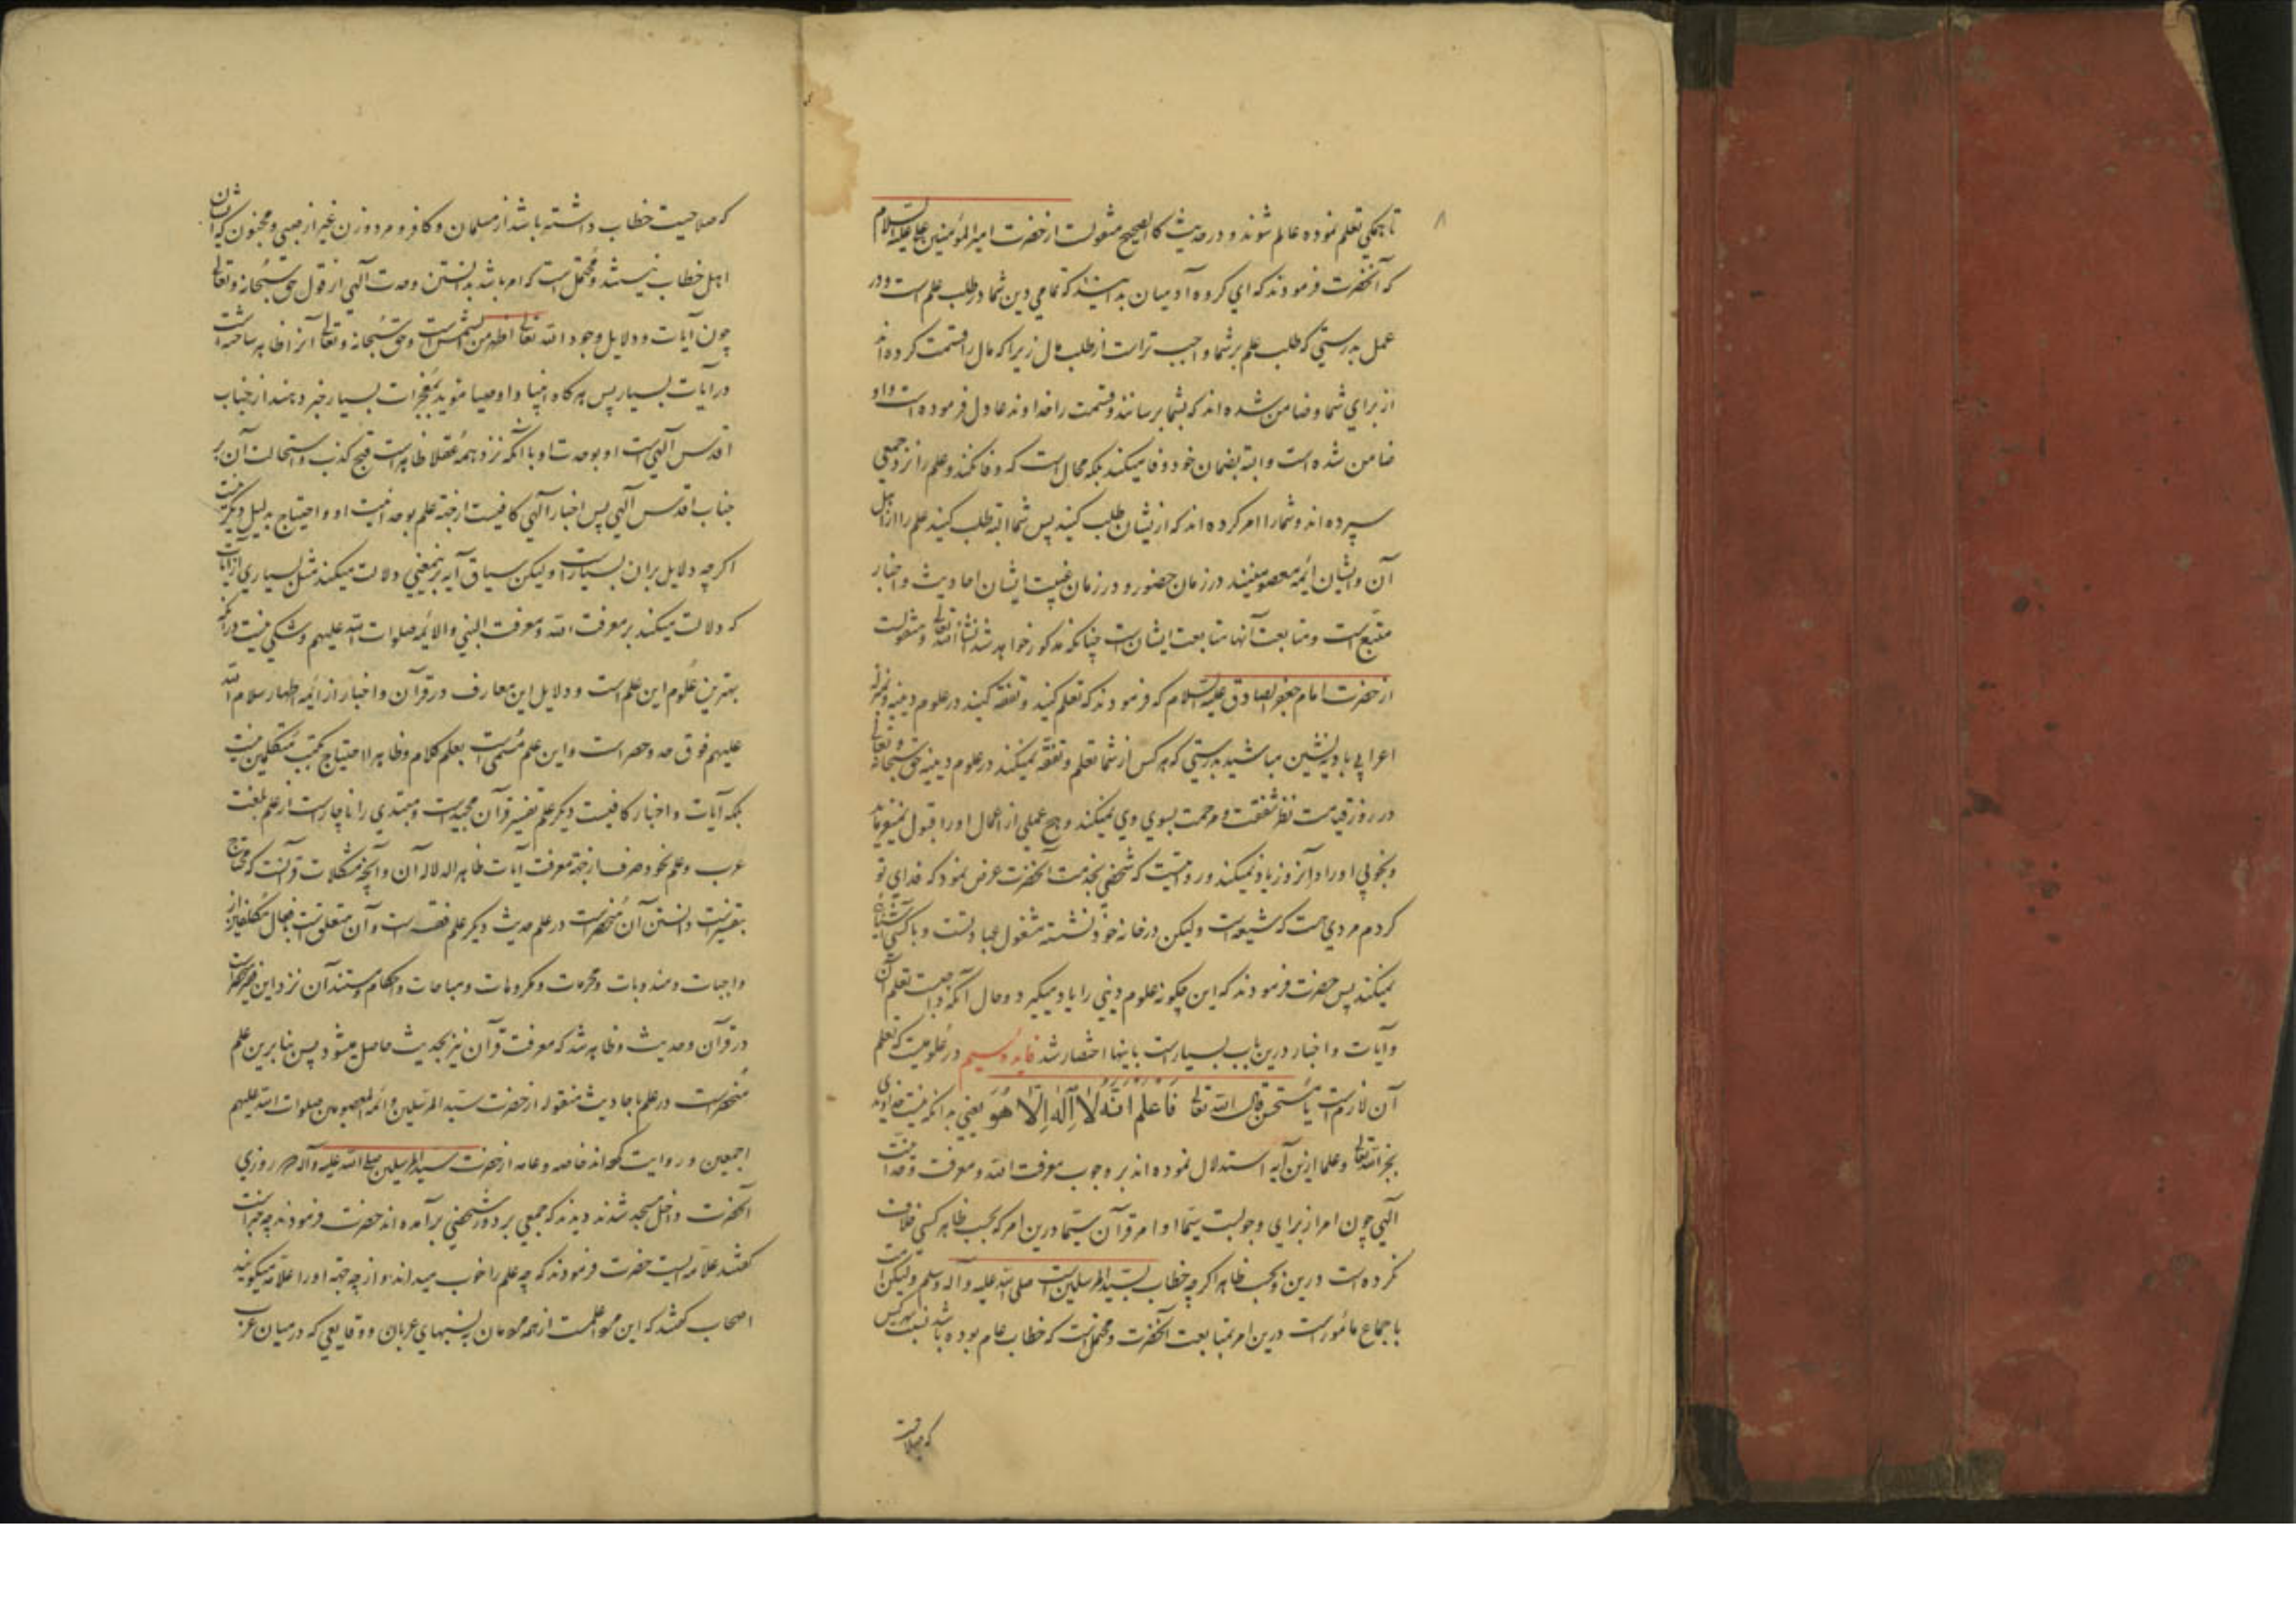 ۸
تا همكي تعلم نموده عالم شوند و در حديث كالصحيح منقولست از حضرت امير المؤمنين علي عليه السلام
كه آنحضرت فرمودند كه اي كروه آدميان بدانيد كه تمامي دين شما در طلب علم است و در
عمل بدرستي كه طلب علم بر شما واجب تر است از طلب مال زيرا كه مال را قسمت كرده اند
از براي شما و ضامن شده اند كه بشما برسانند و قسمت را خداوند عادل فرموده است و او
ضامن شده است و البته بضمان خود وفا ميكند بلكه محال است كه وفا نكند و علم را نزد جمعي
سپرده اند و شما را امر كرده اند كه ازيشان طلب كنيد پس شما البته طلب كنيد علم را از اهل
آن و ايشان ائمه معصومينند در زمان حضور و در زمان غيبت ايشان احاديث و اخبار
متبع است و متابعت آنها متابعت ايشانست چنانكه مذكور خواهد شد انشاء الله تعالي و منقولست
از حضرت امام جعفر الصادق عليه السلام كه فرمودند كه تعلم كنيد و تفقه كنيد در علوم دينيه و بمنزله
اعرابي باديه نشين مباشيد بدرستي كه هر كس از شما تعلم و تفقه نميكند در علوم دينيه حق سبحانه و تعالي
در روز قيامت نظر شفقت و مرحمت بسوي وي نميكند و هيچ عملي از اعمال او را قبول نميفرمايد
و بخوبي او را در آنروز ياد نميكند و روايتست كه شخصي بخدمت آنحضرت عرض نمود كه فداي تو
كردم مردي هست كه شيعه است وليكن در خانه خود نشسته مشغول عبادتست و با كسي آشنائي
نميكند پس حضرت فرمودند كه اين چكونه علوم ديني را ياد ميكيرد و حال آنكه واجبست تعلم آن
و آيات و اخبار درين باب بسيار است باينها اختصار شد فايده سيم در علوميست كه تعلم
آن لازمست يا مستحسن قال الله تعالي فَاعلم انَّه لَا اِلٰه اِلَّا هُوَ يعني بدانكه نيست خداوندي
بجز الله تعالي و علما ازين آيه استدلال نموده اند بر وجوب معرفت الله و معرفت وحدانيت
آلهي چون امر از براي وجوبست سيما اوامر قرآن سيما درين امر كه بحسب ظاهر كسي خلاف
نكرده است درين و بحسب ظاهر اكرچه خطاب بسيد المرسلين است صلي الله عليه و آله و سلم وليكن امت
باجماع مأمورست درين امر بمتابعت آنحضرت و محتملست كه خطاب عام بوده باشد نسبت بهر كس
كه صلاحيت
كه صلاحيت خطاب داشته باشد از مسلمان و كافر و مرد و زن غير از صبي و مجنون كه ايشان
اهل خطاب نيستند و محتمل است كه امر باشد بدانستن وحدت آلهي از قول حق سبحانه و تعالي
چون آيات و دلايل وجود الله تعالي اظهر من الشمس است و حق سبحانه و تعالي آنرا ظاهر ساخته است
در آيات بسيار پس هر كاه انبيا و اوصيا مؤيد بمعجزات بسيار خبر دهند از جناب
اقدس آلهي است او بوحدت او با آنكه نزد همه عقلا ظاهر است قبح كذب و استحالت آن بر
جناب اقدس آلهي پس اخبار آلهي كافيست از جهته علم بوحدانيت او و احتياج بدليل ديكر نيست
اكرچه دلايل بر ان بسيار است وليكن سياق آيه برينمعني دلالت ميكند مثل بسياري از آيات
كه دلالت ميكند بر معرفت الله و معرفت النبي و الائمه صلوات الله عليهم و شكي نيست در آنكه
بهترين علوم اين علم است و دلايل اين معارف در قرآن و اخبار از ائمه اطهار سلام الله
عليهم فوق حد و حصر است و اين علم مسمي است بعلم كلام و ظاهرا احتياج بكتب متكلمين نيست
بلكه آيات و اخبار كافيست ديكر علم تفسير قرآن مجيد است و مبتدي را ناچار است از علم لغت
عرب و علم نحو و صرف از جهته معرفت آيات ظاهر الدلاله آن و آنچه مشكلات قرآنست كه محتاج
بتفسيرست دانستن آن منحصرست در علم حديث ديكر علم فقه است و آن متعلق است بافعال مكلفين از
واجبات و مندوبات و محرمات و مكروهات و مباحات و احكام و مستند آن نزد اين فقير منحصر است
در قرآن و حديث و ظاهر شد كه معرفت قرآن نيز بحديث حاصل ميشود پس بنابرين علم
منحصرست در علم باحاديث منقوله از حضرت سيد المرسلين و ائمه المعصومين صلوات الله عليهم
اجمعين و روايت كرده اند خاصه و عامه از حضرت سيد المرسلين صلي الله عليه و آله كه روزي
آنحضرت داخل مسجد شدند ديدند كه جمعي بر دور شخصي برآمده اند حضرت فرمودند چه خبر است
كفتند علامه ايست حضرت فرمودند كه چه علم را خوب ميداند و از چه جهته او را علامه ميكويند
اصحاب كفتند كه اين مرد اعلمست از همه مردمان به نسبهاي عربان و وقايعي كه در ميان عرب